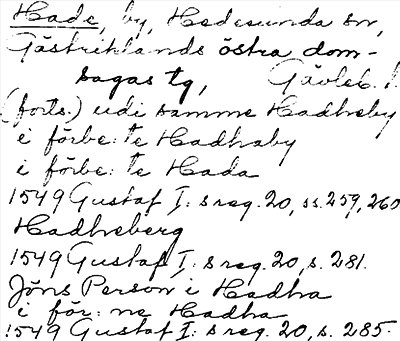 Hade, by, Hedesunda sn,
Gästriklands östra dom-
sagas tg, Gävleb. l.
(forts.) udi samme Hadheby
i förbe: te Hadhaby
i förbe: te Hada
1549 Gustaf I: s reg. 20, ss. 259, 260
Hadheberg
1549 Gustaf I: s reg. 20, s. 281.
Jöns Person i Hadha
i för: ne Hadha
1549 Gustaf I: s reg. 20, s. 285.